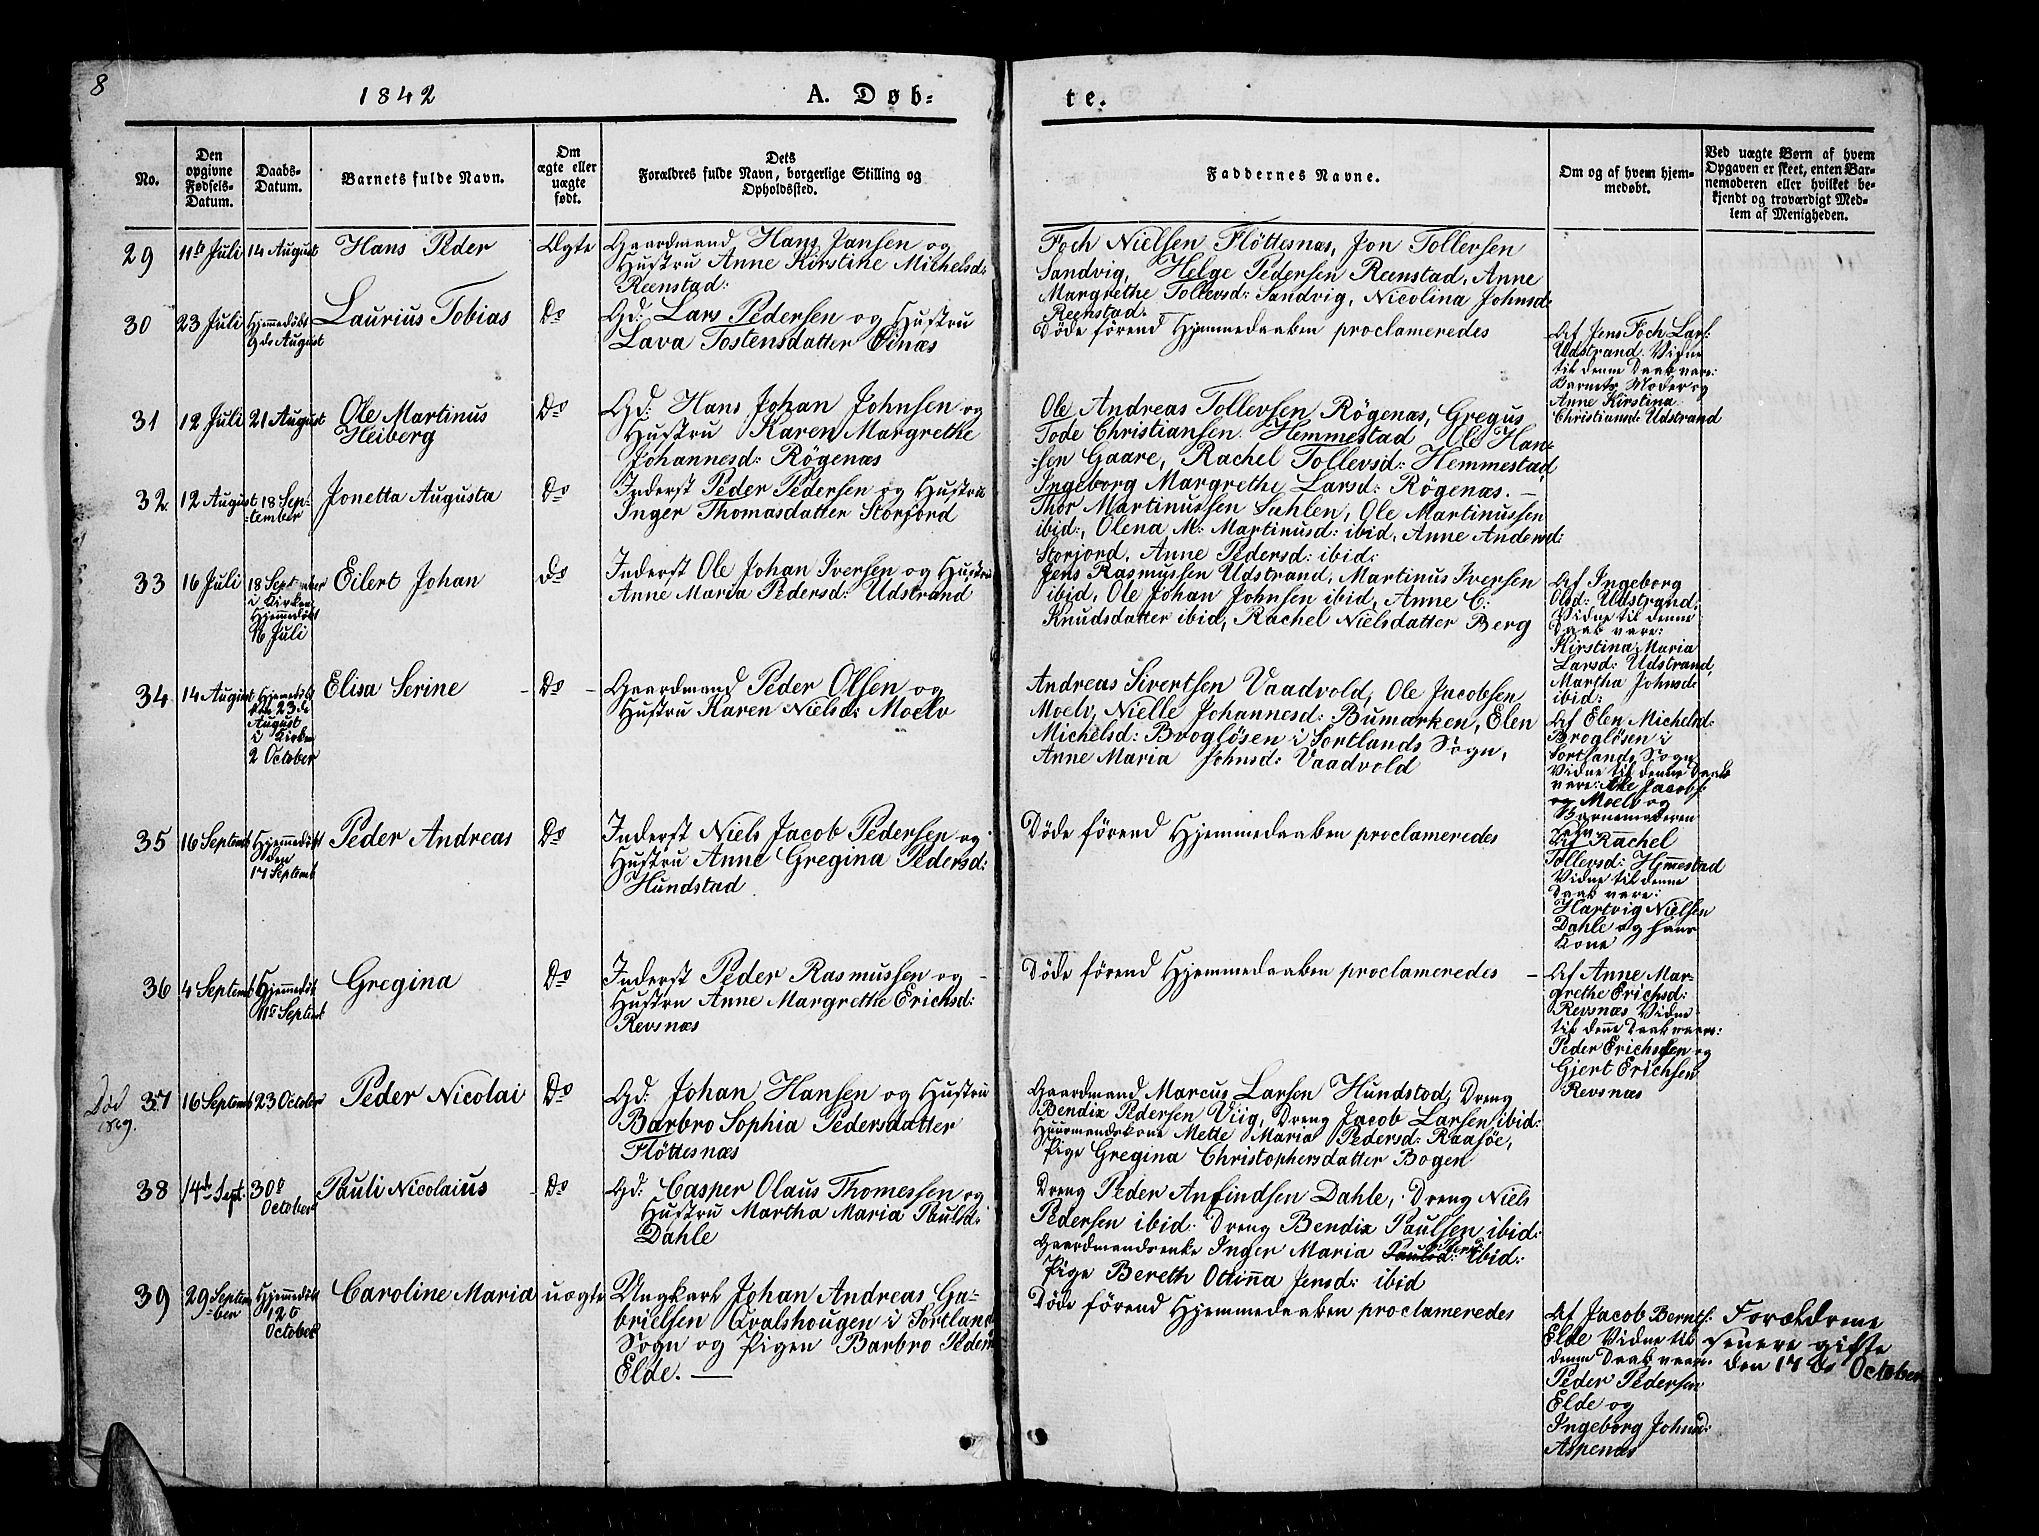 8
1842
A. Døb-
te.
No.
Den
opgivne
Fødsels-
Datum.
Daabs-
Datum.
Barnets fulde Navn.
Om
ægte eller
uægte
født.
Dets
Forældres fulde Navn, borgerlige Stilling og
Opholdssted.
Faddernes Navne.
Om og af hvem hjem-
medøbt.
Ved uægte Børn af hvem
Opgaven er skeet, enten Bar-
nemoderen eller hvilket be-
kjendt og troværdigt Med-
lem af Menigheden.
29
11te Juli
14 August
Hans Peder
Ægte
Gaardmand Hans Jansen og
Hustru Anne Kirstine Michelsd:
Reenstad:
Foch Nielsen Flöttesnæs, Jon Tollevsen
Sandvig, Helge Pedersen Reenstad, Anne
Margrethe Tollevsd: Sandvig, Nicolina Johnsd:
Reenstad.
30
23 Juli
Hjemmedøbt
August
Laurius Tobias
Do
Gd: Lars Pedersen og Hustru
Lava Tostensdatter
Döde förend Hjemmedaaben proclameredes
Af Jens Foch Lars:
Udstrand. Vidne
til denne Daab vare:
Barnets Moder og
Anne Kirstina
Christiansd: Udstrand
31
12 Juli
21 August
Ole Martinus
Heiberg
Do
Gd: Hans Johan Johnsen og
Hustru Karen Margrethe
Johannesd: Rögenæs
Ole Andreas Tollevsen Rögenæs, Gregus
Tode Christiansen Hemmestad Ole Han-
sen Gaare, Rachel Tollevsd: Hemmestad,
Ingeborg Margrethe Larsd: Rögenæs. –
32.
12 August
18 Sep-
tember
Jonetta Augusta
Do
Inderst Peder Pedersen og Hustru
Inger Thomasdatter Storjord
Thor Martinussen Sahlen, Ole Martinussen
ibid:, Olena M: Martinusd: ibid, Anne Andersd:
Storjord, Anne Pedersd: ibid:
33
16 Juli
18 Sept
i Kirken
Hjemmedøbt
16 Juli
Eilert Johan
do
Inderst Ole Johan Iversen og Hustru
Anne Maria Pedersd: Udstrand
Jens Rasmussen Udstrand, Martinus Iversen
ibid, Ole Johan Johnsen ibid, Anne C:
Knudsdatter ibid, Rachel Nielsdatter Berg
Af Ingeborg
Olsd: Udstrand,
Vidne til denne
Daab vare:
Kirstina Maria
Larsd: Udstrand,
Martha Johnsd:
ibid:
34
14 August
Hjemmedøbt
23de
August
i Kirken
2 October
Elisa Serine
Do
Gaardmand Peder Olsen og
Hustru Karen Nielsd: Moelv
Andreas Sivertsen Vaadvold, Ole Jacobsen
Moelv, Nielle Johannesd: Bumarken, Elen
Michelsd: Broglösen i Sortlands Sogn,
Anne Maria Johnsd: Vaadvold
Af Elen Michelsd:
Broglösen i
Sortlands Sogn
Vidne til denne Daab
vare: Ole Jacobs:
og Moelv og
Barnemoderen
35
16 Septemb
Hjemmedøbt
den
17 Septemb
Peder Andreas
Do
Inderst Niels Jacob Pedersen og
Hustru Anne Gregina Pedersd:
Hundstad
Döde förend Hjemmedaaben proclameredes
Af Rachel
Tollevsd: Hemmestad
Vidne til denne
Daab vare:
Hartvig Nielsen
Dahle og hans
Kone
36
4 Septemb
Hjemmedøbt
11te Septemb
Gregina
Do
Inderst Peder Rasmussen og
Hustru Anne Margrethe Erichsd:
Revsnæs
Döde förend Hjemmedaaben proclameredes –
Af Anne Mar-
grethe Erichsd:
Revsnæs Vidne
til denne Daab vare:
Peder Erichsen og
Gjert Erichsen
Revsnæs
Död
37
16 Septemb
23 October
Peder Nicolai
Do
Gd: Johan Hansen og Hustru
Barbro Sophia Pedersdatter
Flöttesnæs
Gaardmand Marcus Larsen Hundstad, Dreng
Bendix Pedersen Viig, Dreng Jacob Larsen ibid:
Huusmandskone Mette Maria Pedersd: Raasöe,
Pige Gregina Christophersdatter Bogen
38
14de Sept.
30te
October
Pauli Nicolaius
Do
Gd: Casper Olaus Thomessen og
Hustru Martha Maria Paulsd:
Dahle
Dreng Peder Anfindsen Dahle, Dreng Niels
Pedersen ibid. Dreng Bendix Paulsen ibid:
Gaardmandsenke Inger Maria ibid:
Pige Bereth Ottinna Jensd: ibid
39
29 Septem
ber
Hjemmedøbt
12te
October
Caroline Maria
uægte
Ungkarl Johan Andreas Ga-
brielsen Qvalshougen i Sortland
Sogn og Pigen Barbro Peders
Elde. —
Döde förend Hjemmedaaben proclameredes
Af Jacob Bernts:
Elde Vidne til
denne Daab vare:
Peder Pedersen
Elde og
Ingeborg Johnsd:
Aspenæs
Forældrene
senere gifte
den 17de October